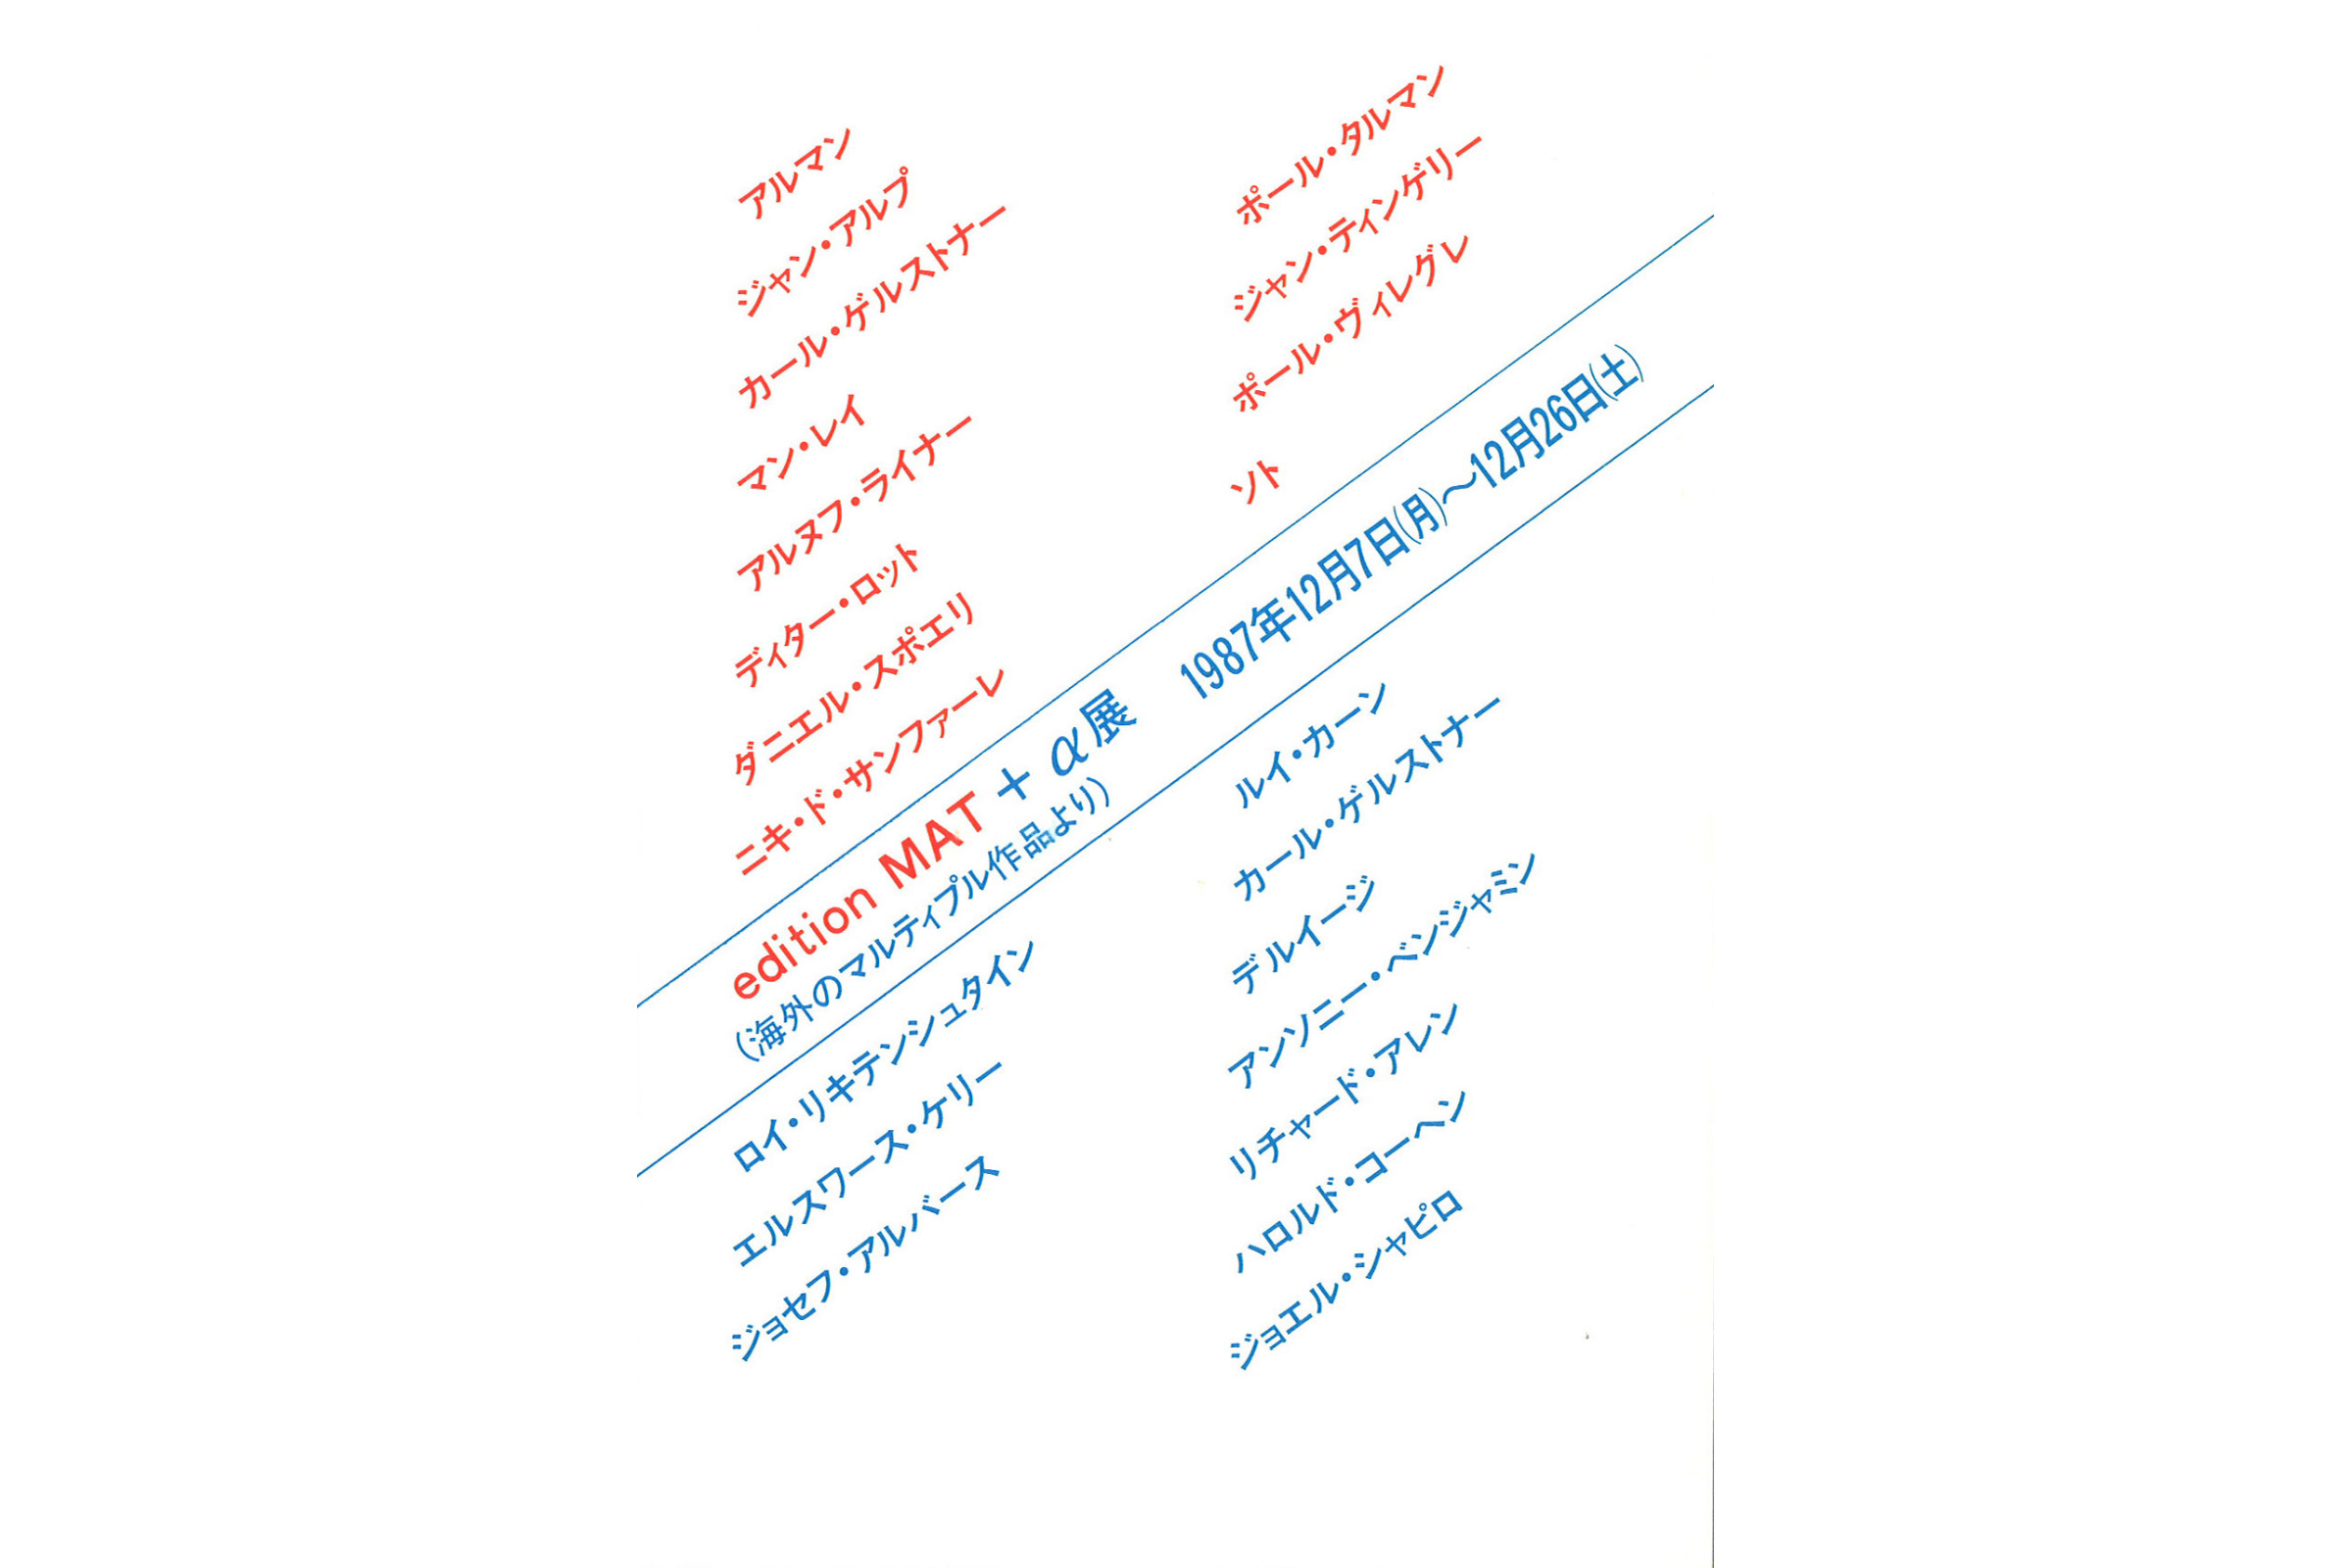 アルマン
ジャン・アルプ
カール・ゲルストナー
マン・レイ
アルヌフ・ライナー
ディター・ロット
ダニエル・スポエリ
ニキ・ド・サンファーレ
ポール・タルマン
ジャン・ティンゲリー
ポール・ヴィレグレ
ソト
edition MAT + α展　1987年12月7日(月)〜12月26日(土)
(海外のマルティプル作品より)
ロイ・リキテンシュタイン
エルスワース・ケリー
ジョセフ・アルバース
ルイ・カーン
カール・ゲルストナー
デルイージ
アンソニー・ベンジャミン
リチャード・アレン
ハロルド・コーヘン
ジョエル・シャピロ